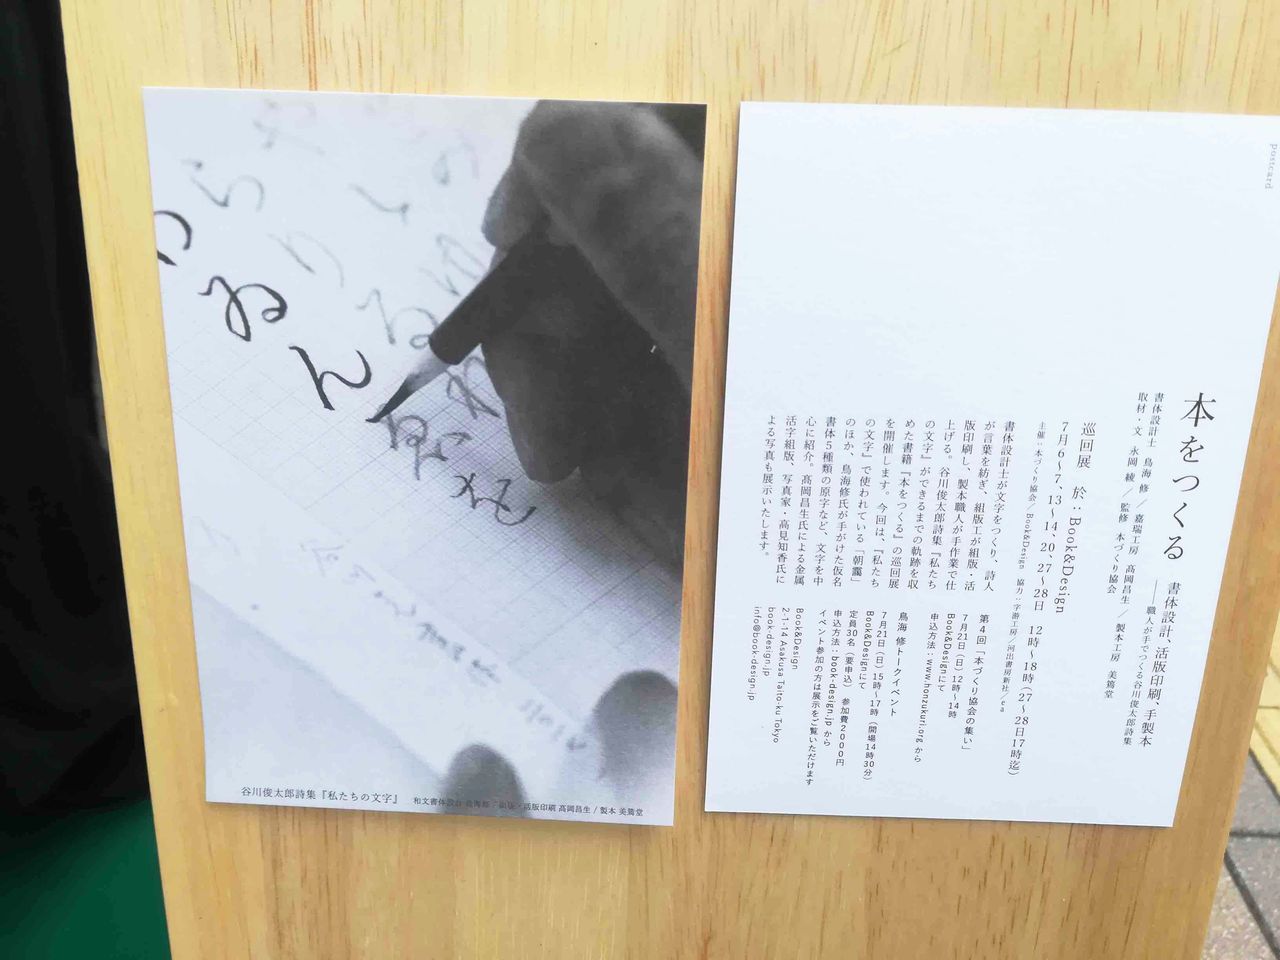 わ
ゐ
ん
谷川俊太郎詩集『私たちの文字』
和文書体設計 鳥海修 / 組版・活版印刷 髙岡昌生 / 製本 美篶堂
Postcard
本をつくる
書体設計、活版印刷、手製本
──職人が手でつくる谷川俊太郎詩集
書体設計士 鳥海 修 / 嘉瑞工房 髙岡昌生 / 製本工房 美篶堂
取材・文 永岡 綾 / 監修 本づくり協会
巡回展 於：Book&Design
7月6〜7、13〜14、20、27〜28日 12時〜18時（27〜28日17時迄）
主催：本づくり協会/Book&Design 協力：字游工房/河出書房新社/ea
書体設計士が文字をつくり、詩人
が言葉を紡ぎ、組版工が組版・活
版印刷し、製本職人が手作業で仕
上げる。谷川俊太郎詩集『私たち
の文字』ができるまでの軌跡を収
めた書籍『本をつくる』の巡回展
を開催します。今回は、『私たち
の文字』で使われている「朝靄」
のほか、鳥海修氏が手がけた仮名
書体5種類の原字など、文字を中
心に紹介。髙岡昌生氏による金属
活字組版、写真家・高見知香氏に
よる写真も展示いたします。
第4回「本づくり協会の集い」
7月21日（日）12時〜14時
Book&Designにて
申込方法：www.honzukuri.org から
鳥海 修トークイベント
7月21日（日）15時〜17時（開場14時30分）
Book&Designにて
定員30名（要申込） 参加費2000円
申込方法：book-design.jp から
イベント参加の方は展示をご覧いただけます
Book&Design
2-1-14 Asakusa Taito-ku Tokyo
book-design.jp
info@book-design.jp